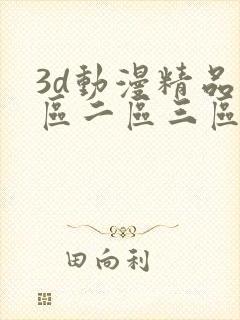 3d動漫精品
區二區三區
田向利